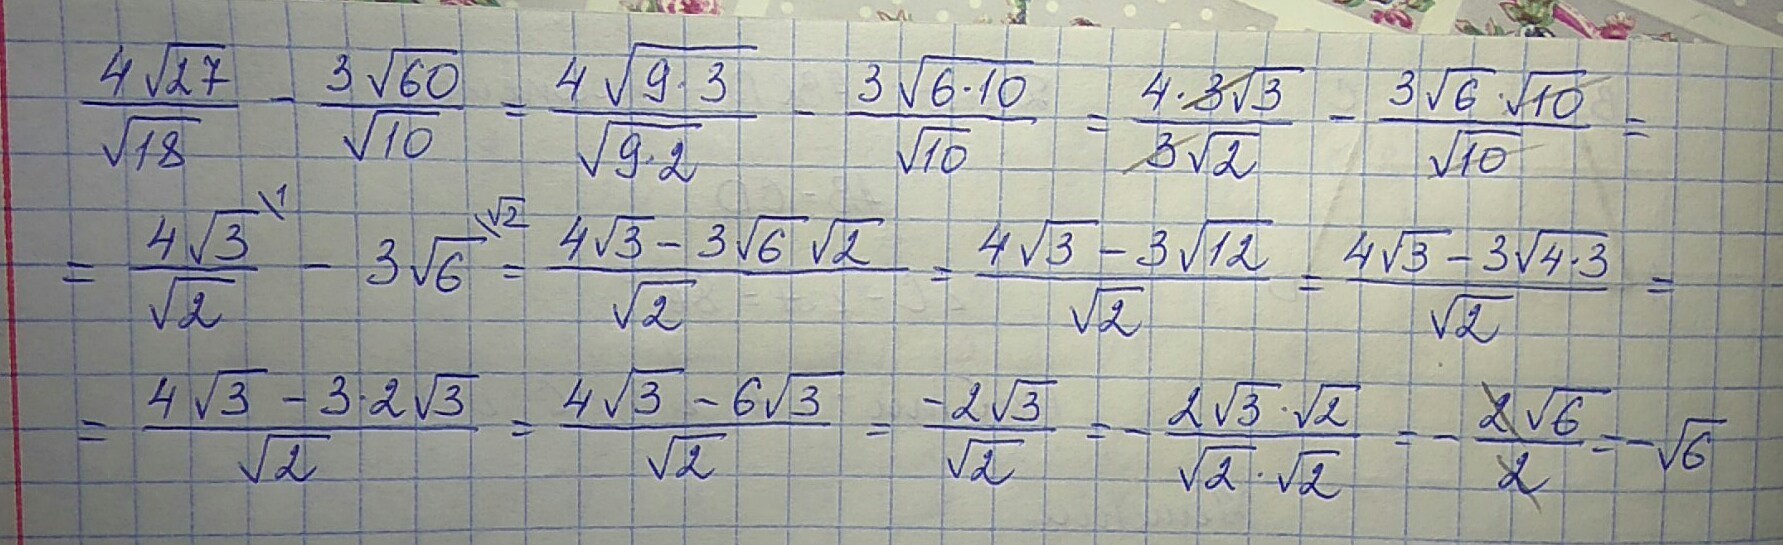 4√27/√18 - 3√60/√10 = 4√(9·3)/√(9·2) - 3√(6·10)/√10 = 4·3√3/3√2 - 3√6·√10/√10 =
= 4√3/√2 \1 - 3√6 \√2 = (4√3 - 3√6 √2)/√2 = (4√3 - 3√12)/√2 = (4√3 - 3√(4·3))/√2 =
= (4√3 - 3·2√3)/√2 = (4√3 - 6√3)/√2 = -2√3/√2 = - 2√3·√2/√2·√2 = - 2√6/2 = -√6